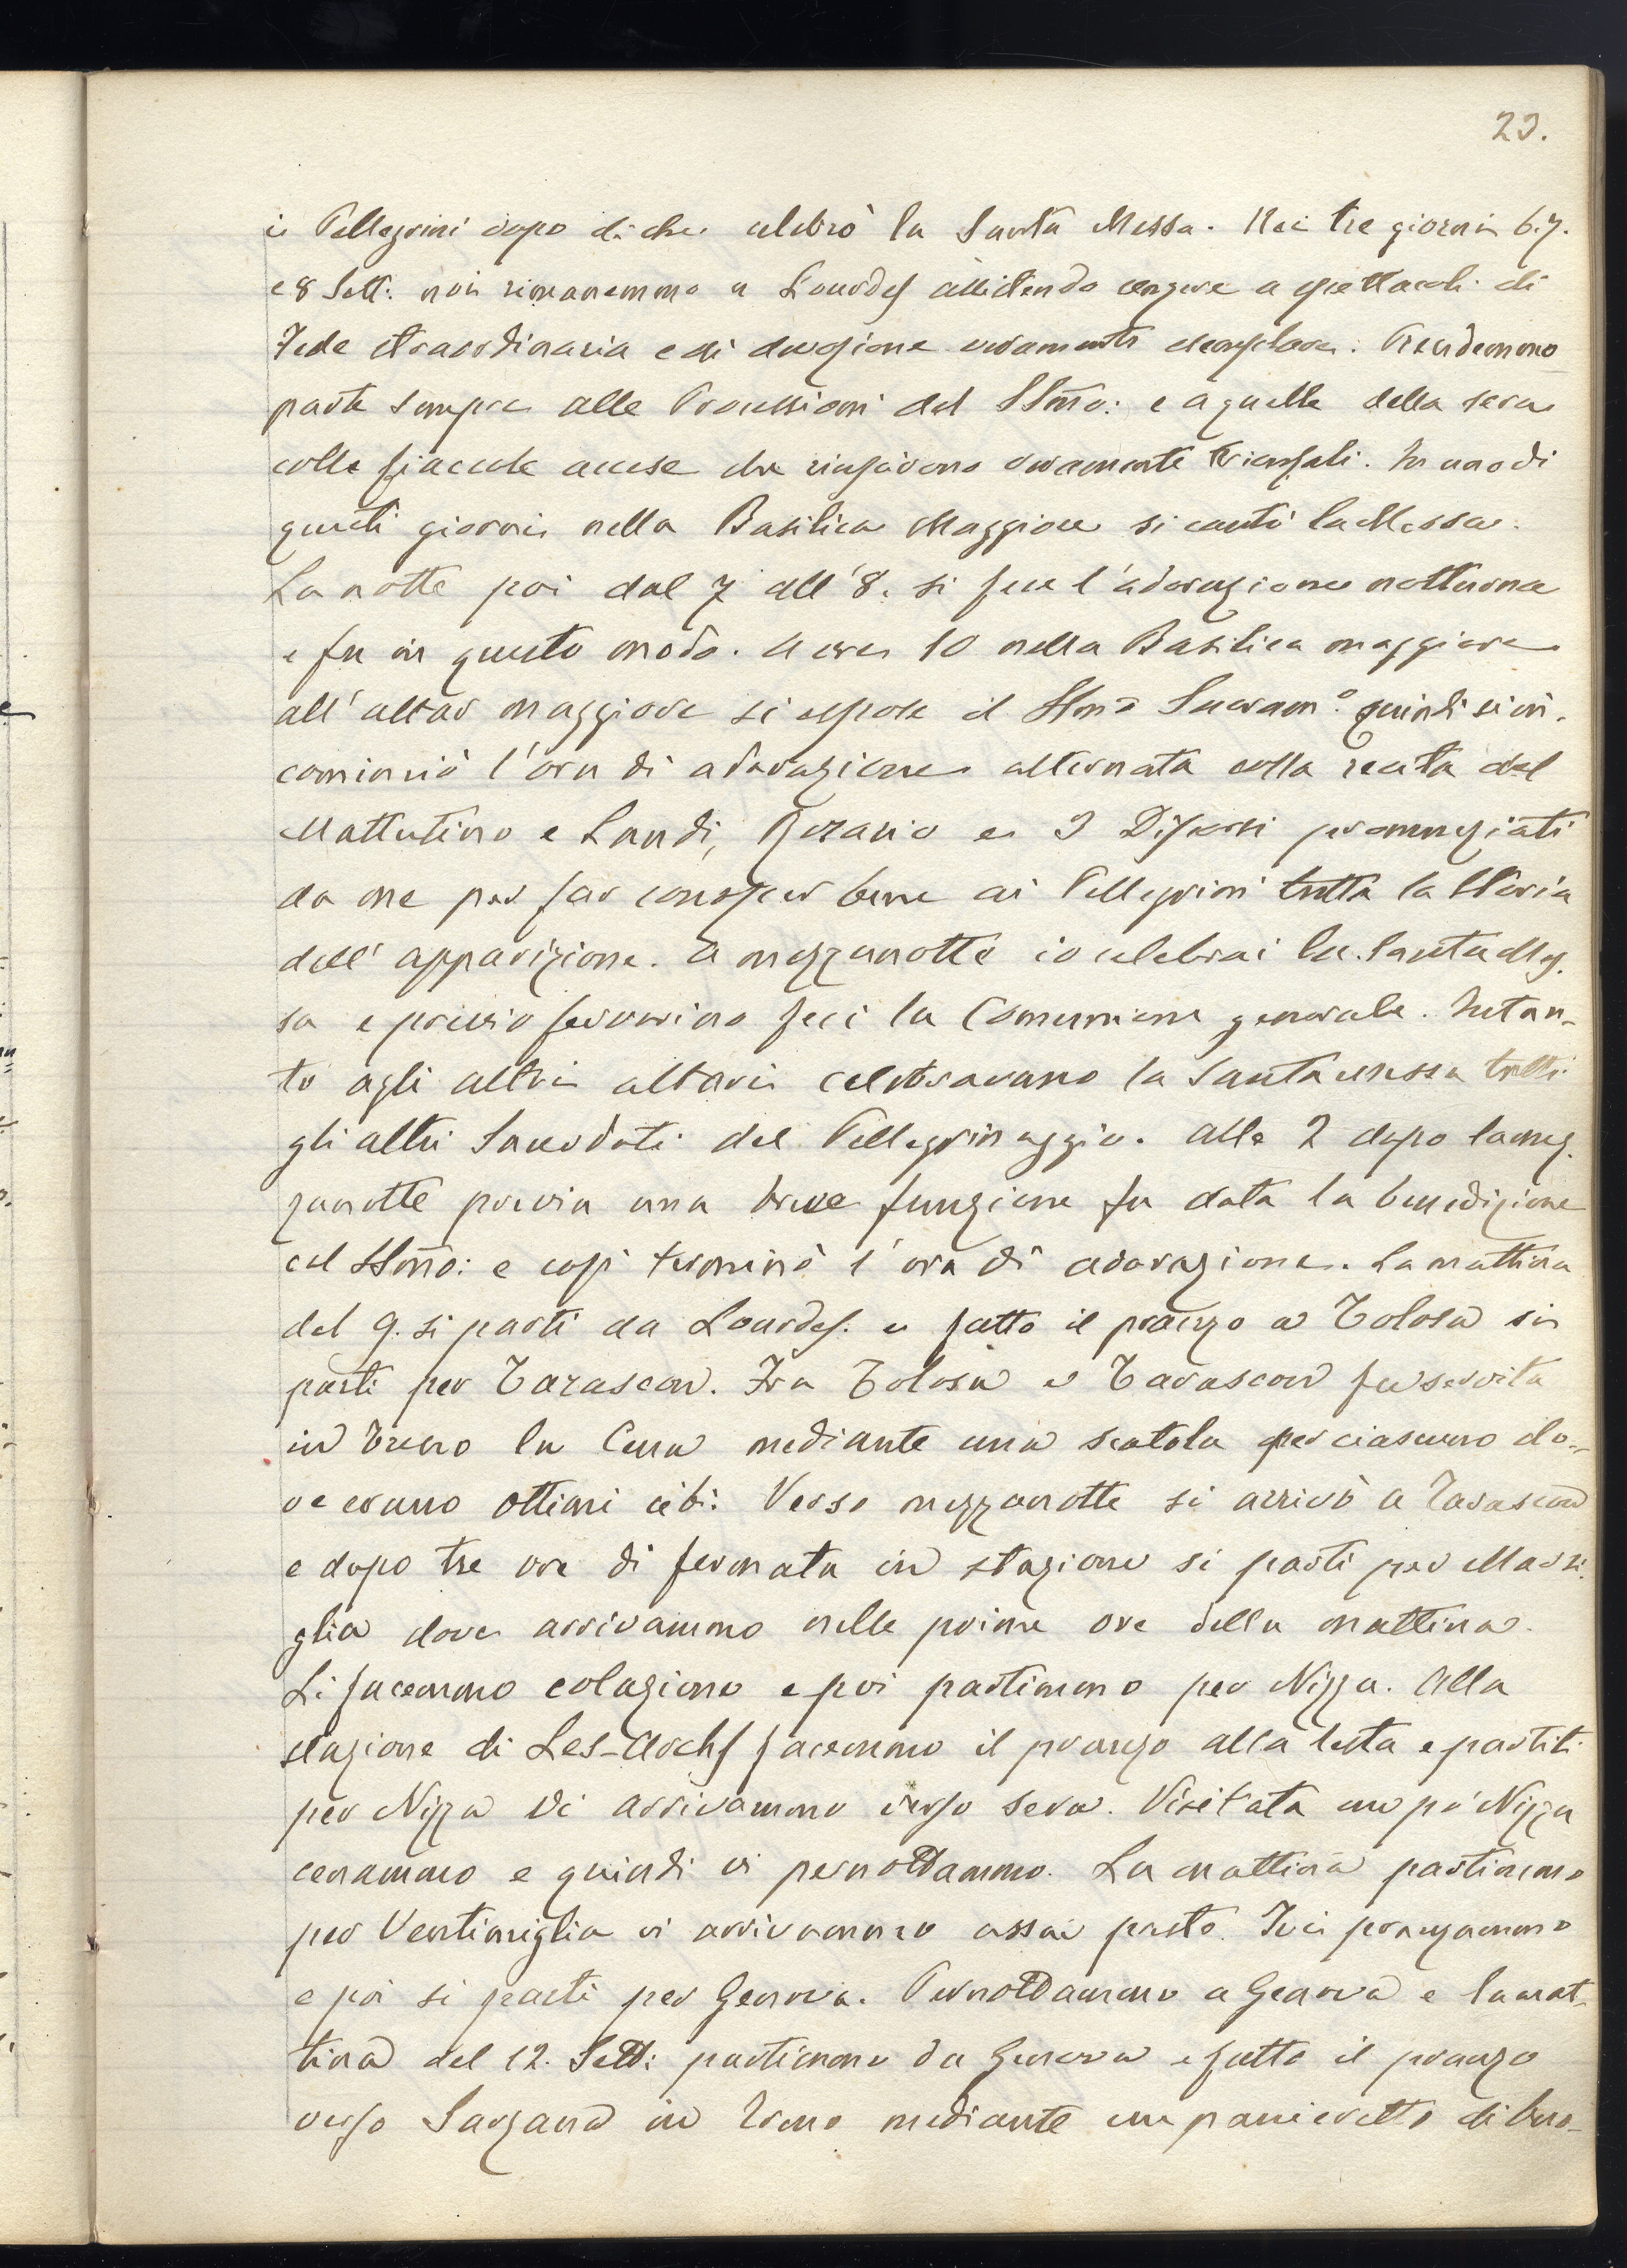 23.
i Pellegrini dopo di che celebrò la Santa Messa. Nei tre giorni 6. 7.
e 8 Sett: noi rimanemmo a Lourdes assistendo sempre a spettacoli di
Fede straordinaria e di devozione veramente esemplare. Prendemmo
parte sempre alle Processioni del SSmo: e a quelle della sera
colle fiaccole accese che riuscirono veramente trionfali. In uno di
questi giorni nella Basilica Maggiore si cantò la Messa.
La notte poi dal 7 all'8. si fece l'adorazione notturna
e fu in questo modo. A ore 10 nella Basilica maggiore
all'altar maggiore si espose il SSmo Sacram.o quindi si in-
cominciò l'ora di adorazione alternata colla recita del
Mattutino e Laudi, Rosario e 3 Discorsi pronunziati
da me per far conoscer bene ai Pellegrini tutta la Storia
dell'apparizione. A mezzanotte io celebrai la Santa Mes-
sa e previo fervorino feci la Comunione generale. Intan-
to agli altri altari celebravano la Santa messa tutti
gli altri Sacerdoti del Pellegrinaggio. Alle 2 dopo la mez-
zanotte previa una breve funzione fu data la benedizione
col SSmo: e così terminò l'ora di adorazione. La mattina
del 9. si partì da Lourdes. e fatto il pranzo a Tolosa si
partì per Tarascon. Fra Tolosa e Tarascon fu servita
in treno la Cena mediante una scatola per ciascuno do-
ve erano ottimi cibi: Verso mezzanotte si arrivò a Tarascon
e dopo tre ore di fermata in stazione si partì per Marsi-
glia dove arrivammo nelle prime ore della mattina.
Lì facemmo colazione e poi partimmo per Nizza. Alla
stazione di Les-Archs facemmo il pranzo alla lesta e partiti
per Nizza vi arrivammo verso sera. Visitata un pò Nizza
cenammo e quindi vi pernottammo. La mattina partimmo
per Ventimiglia vi arrivammo assai presto. Ivi pranzammo
e poi si partì per Genova. Pernottammo a Genova e la mat-
tina del 12. Sett: partimmo da Genova e fatto il pranzo
verso Sarzana in treno mediante un panieretto di buo-